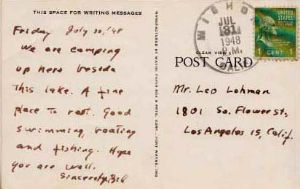 THIS SPACE FOR WRITING MESSAGES
Friday July 30/48
We are camping
up here beside
this lake. A fine
place to rest. Good
swimming, boating
and fishing. Hope
you are well.
Sincerely, Bob
JUL
31
1948
P.M.
CALIF.
UNITED STATES
1 CENT
POST CARD
Mr. Leo Lohman
1801 So. Flower st,
Los Angeles 15, Calif.